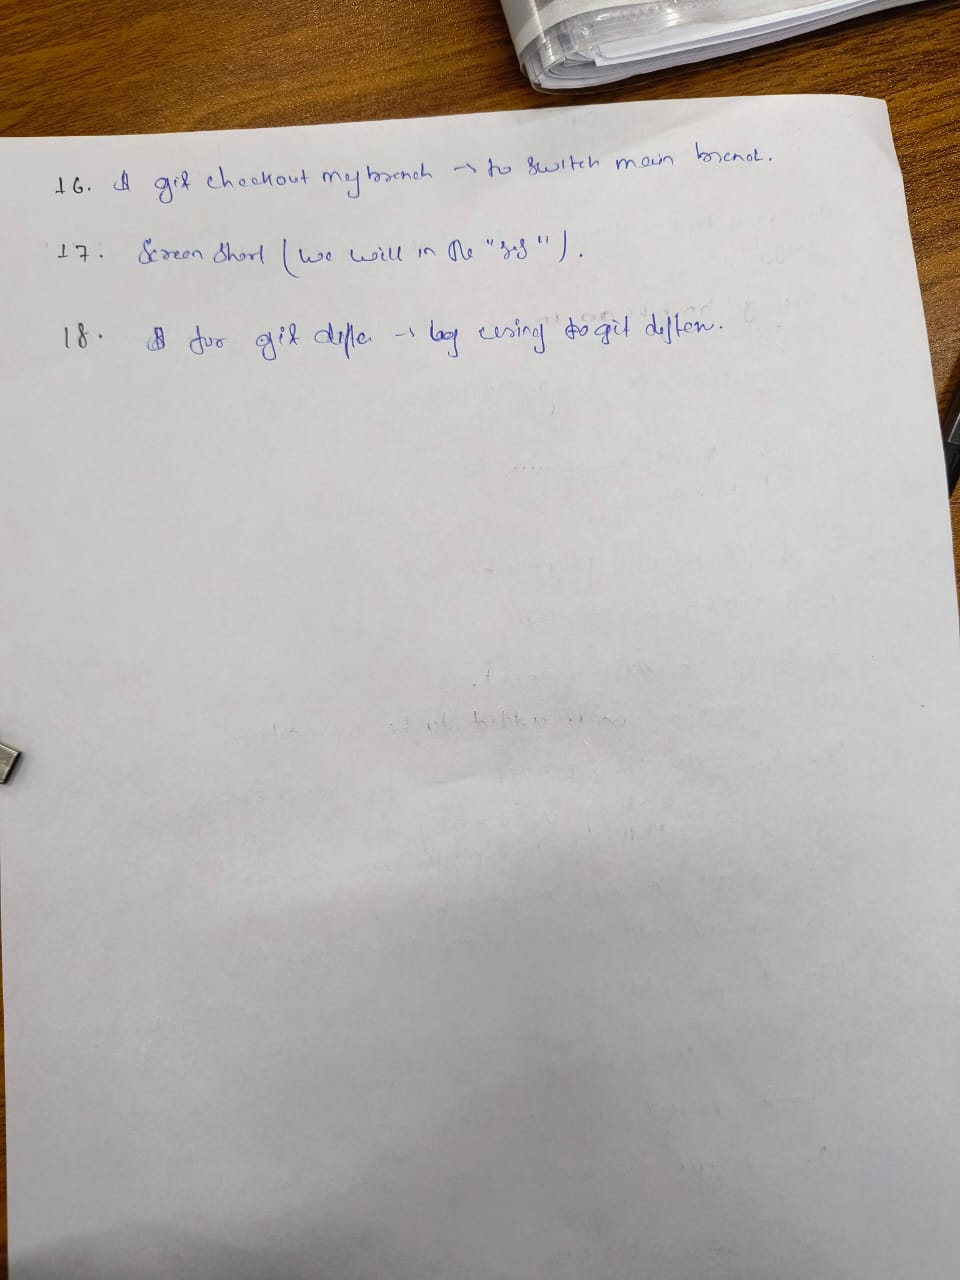 16. $ git checkout mybranch → to switch main branch.
17. Screen Short (we will in the " ").
18. $ for git → by using to git